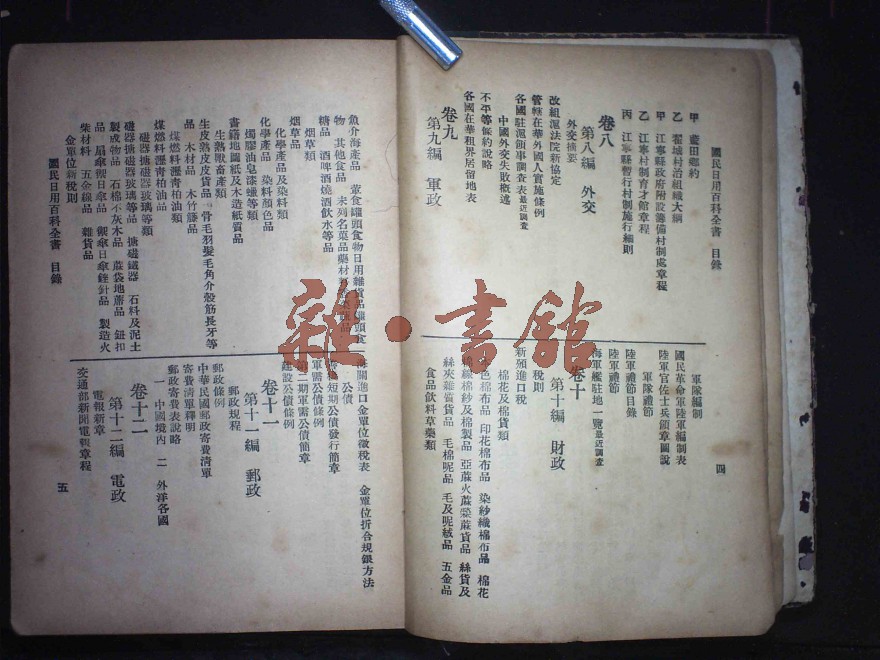 國民日用百科全書 目錄
甲 藍田鄉約
乙 翟城村治組織大綱
甲 江寧縣政府附設籌備村制處章程
乙 江寧村制育才館章程
丙 江寧縣暫行村制施行細則
卷八
第八編 外交
外交摘要
改組滬法院新協定
管轄在華外國人實施條例
各國駐滬領事調查表最近調查
中國外交失敗概述
不平等條約說略
各國在華租界居留地表
卷九
第九編 軍政
軍隊編制
國民革命軍陸軍編制表
陸軍官佐士兵領章圖說
軍隊禮節
陸軍禮節目錄
陸軍禮節
海軍艦駐地一覽最近調查
卷十
第十編 財政
稅則
新頒進口稅
棉花及棉貨類
色棉布品 印花棉布品 染紗織棉布品 棉花
棉纖棉紗及棉製品 亞蔴火蔴檾蔴貨品 絲貨及
絲夾雜質貨品 毛棉呢品 毛及呢絨品 五金品
食品飲料草藥類
四
魚介海產品 葷食罐頭食物日用雜貨品罐頭食
物 其他食品 未列名菜品藥材
糖品 酒啤酒燒酒飲水等品
烟草類
烟草品
化學產品及染料類
化學產品 染料顏色品
燭膠油皂漆蠟等類
書籍地圖紙及木造紙質品
生熟獸畜產類
生皮熟皮皮貨品 骨毛羽髮毛角介殼筋長牙等
品 木材品 木竹籐品
煤燃料瀝青柏油類
煤燃料瀝青柏油品
磁器搪磁器玻璃等類
磁器搪磁器玻璃等品 搪磁鐵器 石料及泥土
製成物品 石棉不灰木品 蔴袋地蓆品 鈕扣
品 扇傘襯日傘品 襯傘日傘銼針品 製造火
柴材料 五金線品 雜貨品
金單位新稅則
國民日用百科全書 目錄
海關進口金單位徵稅表 金單位折合規銀方法
公債
短期公債發行簡章
軍需公債條例
第二期軍需公債簡章
建設公債條例
卷十一
第十一編 郵政
郵政規程
郵政條例
中華民國郵政寄費清單
寄費清單釋明
郵政寄費表說略
一 中國境內 二 外洋各國
卷十二
第十二編 電政
電報新章
交通部新聞電報章程
五
雜·書館